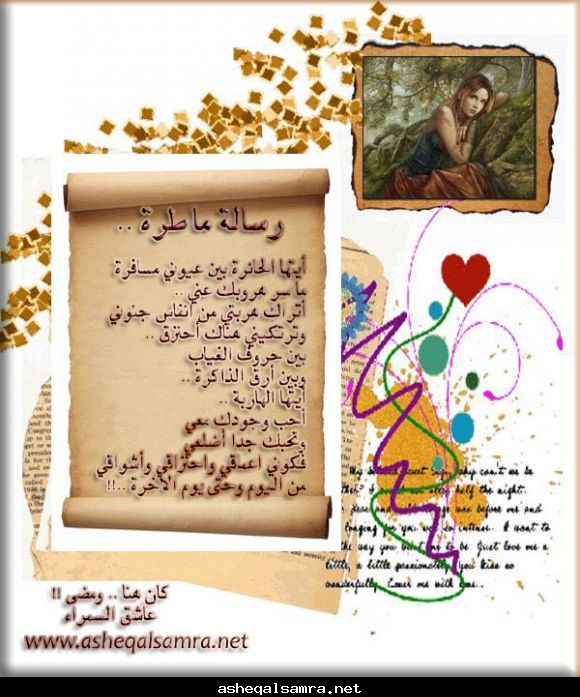 رسالة ماطرة ..
أيتها الحائرة بين عيوني مسافرة
ما سر هروبك عني ..
أتراك هربتي من انفاس جنوني
وتركتيني هناك أحترق ..
بين حروف الغياب
وبين أرق الذاكرة ..
أيتها الهاربة ..
أحب وجودك معي
وتحبك جدا أضلعي
فكوني اعماقي واحتراقي وأشواقي
من اليوم وحتى يوم الآخرة ..!!
My sweet why can't we be
I not sleep half the night.
dear and before me and
longing for you so intense. I want to
the way you want me to be. Just love me a
little, a little passionately, you kiss so
wonderfully. Cover me with
كان هنا .. ومضى !!
عاشق السمراء
www.asheqalsamra.net
asheqalsamra.net